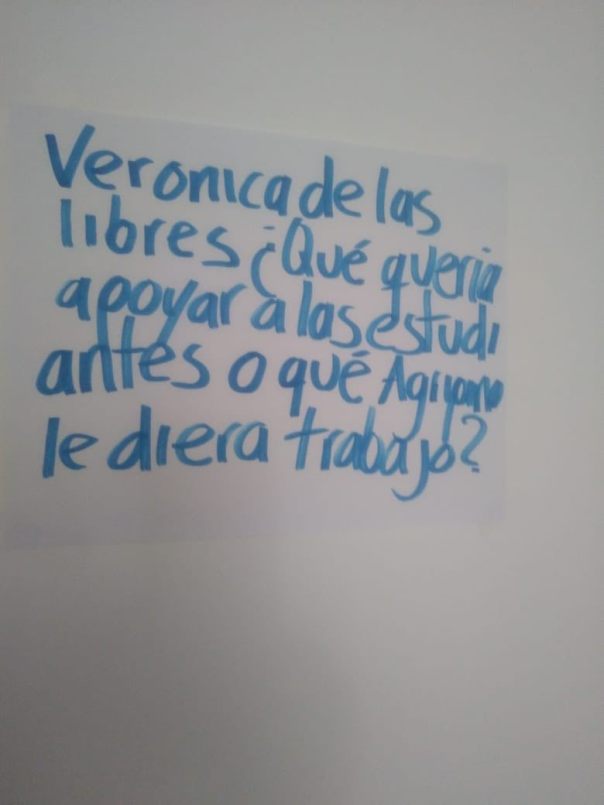 Veronica de las
libres ¿Qué queria
apoyar a las estudi
antes o qué
le diera trabajo?